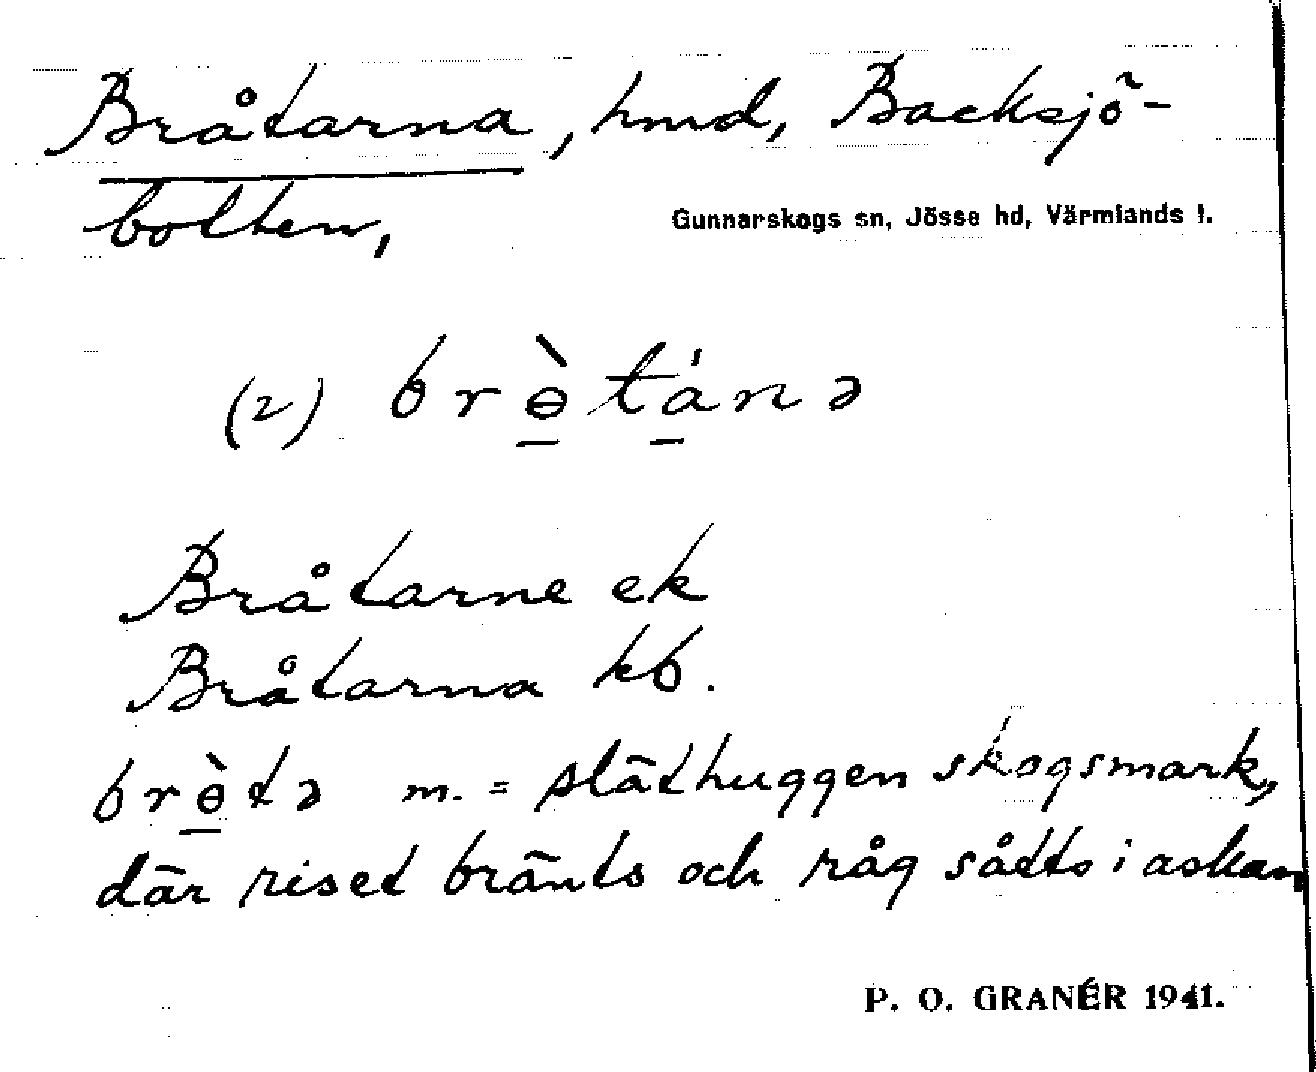 Bråtarna, hmd, Backsjö-
bolten,
Gunnarskogs sn, Jösse hd, Värmlands l.
(2) brɵ̀tánə
Bråtarne ek
Bråtarna kb.
brɵ̀tə m. = släthuggen skogsmark,
där riset bränts och råg såtts i askan
P. O. GRANÉR 1941.